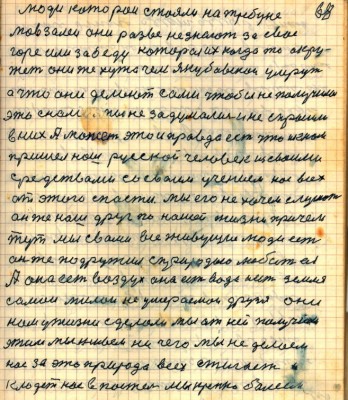 люди которои стояли на трибуне
мовзалеи они разве не знают за свое
горе или за беду которои их когда то окру-
жет они же хужа чем Якубовскии умрут
а что они делают сами чтоби не получит
это с нами. ми не задумалис и не спросили
в них А может это и правда ест
пришел наш русской человек и своими
средствами со своим учением нас всех
от этого спасти. ми его не хочем слушат
он же наш друг по нашей жизни причем
тут ми с вами все живущие люди ест
он же подружил с природою любител
А она ест воздух она ест вода нит земля
самои милои не умераемои друзя они
нам у жизни зделали ми от ней получаем
этим ми живем ни чего ми не делаем
нас за это природа всех стигает и
кладет нас в постел ми крепко болеем